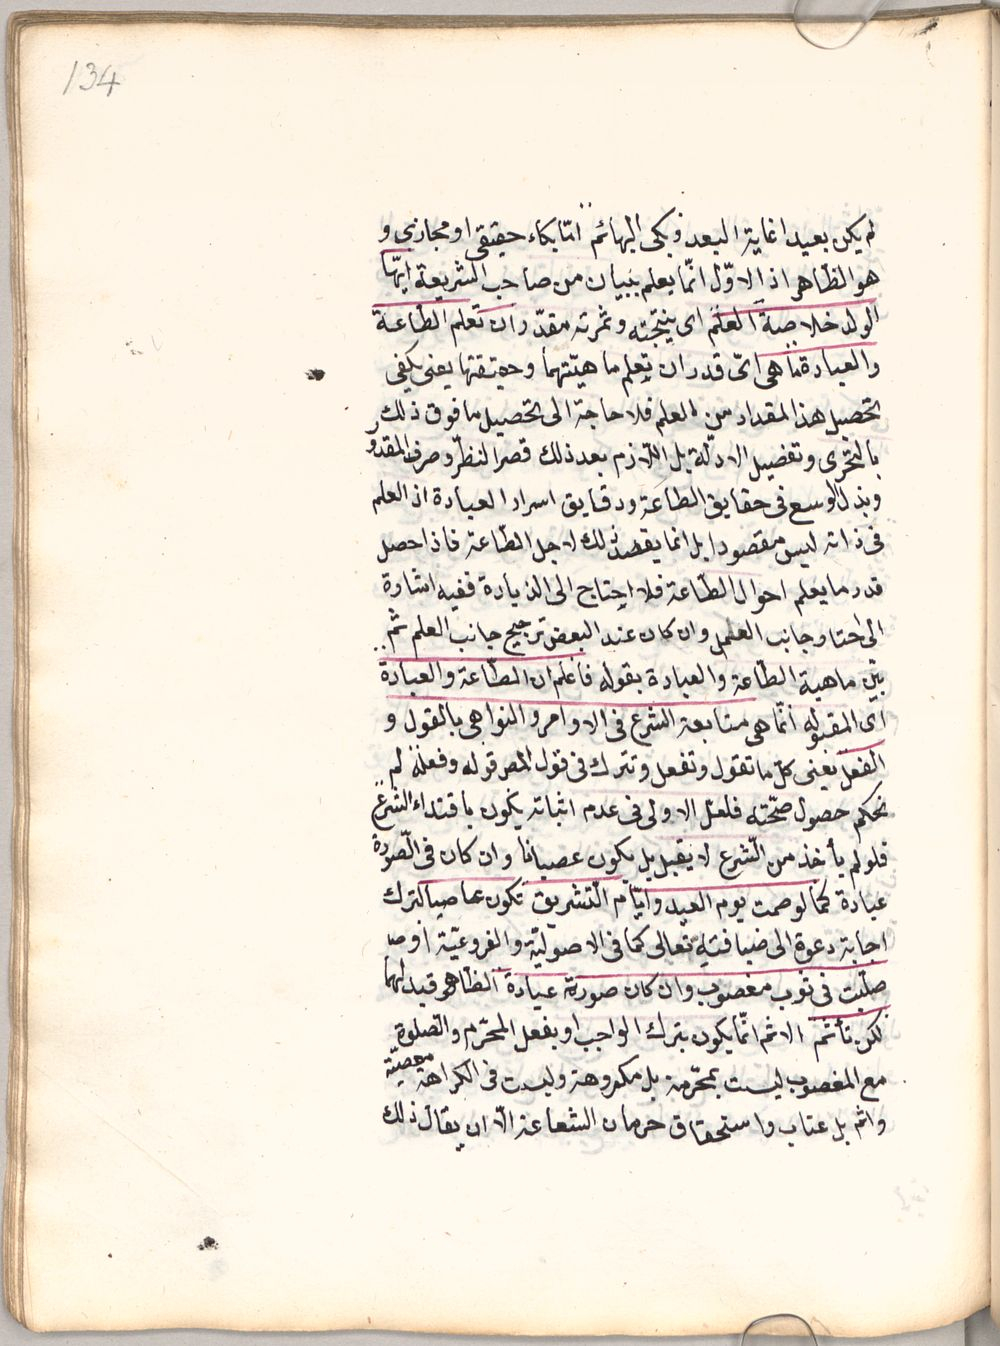 134
لم يكن بعيدا غاية البعد وبكى البهائم امّا بكاء حقيقى او مجازى و
هو الظاهر اذ الاوّل انّما يعلم ببيان من صاحب الشريعة ايّها
الولد خلاصة العلم اى نتيجته وثمرته مقدّر وان تعلم الطّاعة
والعبادة ما هى اىّ قدر ان تعلم ماهيّتهما وحقيقتها يعنى يكفى
تحصيل هذا المقدار من العلم فلا حاجة الى تحصيل ما فوق ذلك
بالتحرى وتفضيل الادلّة بل اللّازم بعد ذلك قصر النظر وصرف المقدور
وبذل الوسع فى حقايق الطاعة ودقايق اسرار العبادة اذ العلم
فى ذاته ليس مقصودا بل انما يقصد ذلك لاجل الطّاعة فاذا حصل
قدر ما يعلم احوال الطّاعة فلا احتاج الى الزيادة ففيه اشارة
الى اختار جانب العمل وان كان عند البعض ترجيح جانب العلم ثم
بيّن ماهية الطّاعة والعبادة بقوله فاعلم ان الطّاعة والعبادة
اى المقبوله انّما هى متابعة الشرع فى الاوامر والنواهى بالقول و
الفعل يعنى كلّ ما تقول وتفعل وتترك فى قول المص قوله وفعله لم
يحكم حصول صحّته فلعلّ الاولى فى عدم اثباته يكون باقتداء الشرع
فلو لم يأخذ من الشّرع لا يقبل بل يكون عصيانا وان كان فى الصّورة
عبادة كما لو صمت يوم العيد وايّام التّشريق تكون عاصيا لترك
اجابة دعوة الى ضيافتله تعالى كما فى الاصوليّة والفروعيّة او صد
صلّيت فى ثوب مغصوب وان كان صورته عبادة الظاهر قيد لهما
لكن تأثم الاثم انّما يكون بترك الواجب او بفعل المحرّم والصّلوة
مع المغصوب ليست بمحرّمة بل مكروهة وليست فى الكراهة معصيّة
واثم بل عتاب واستحقاق حرمان الشفاعة الّا ان يقال ذلك